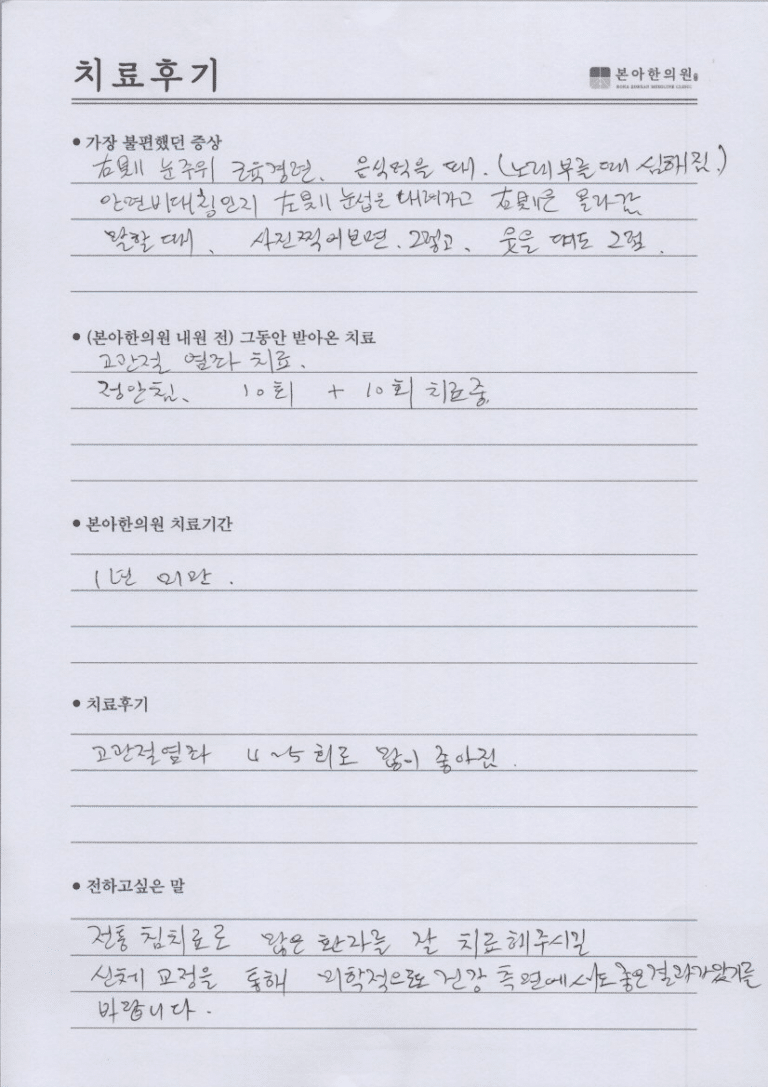 치료후기
본아한의원
BONA KOREAN MEDICINE CLINIC
• 가장 불편했던 증상
右측 눈주위 근육경련. 음식먹을 때. (노래부를때 심해짐.)
안면비대칭인지 左측 눈섭은 내려가고 右측은 올라감
말할 때, 사진찍어보면. 그렇고, 웃을 때도 그럼.
• (본아한의원 내원 전) 그동안 받아온 치료
고관절 염좌 치료.
정안침, 10회 + 10회 치료중.
• 본아한의원 치료기간
1년 미만.
• 치료후기
고관절염좌 4~5회로 많이 좋아짐.
• 전하고싶은 말
전통 침치료로 많은 환자를 잘 치료해주시길
신체 교정을 통해 외학적으로도 건강 측면에서도 좋은결과가있기를
바랍니다.